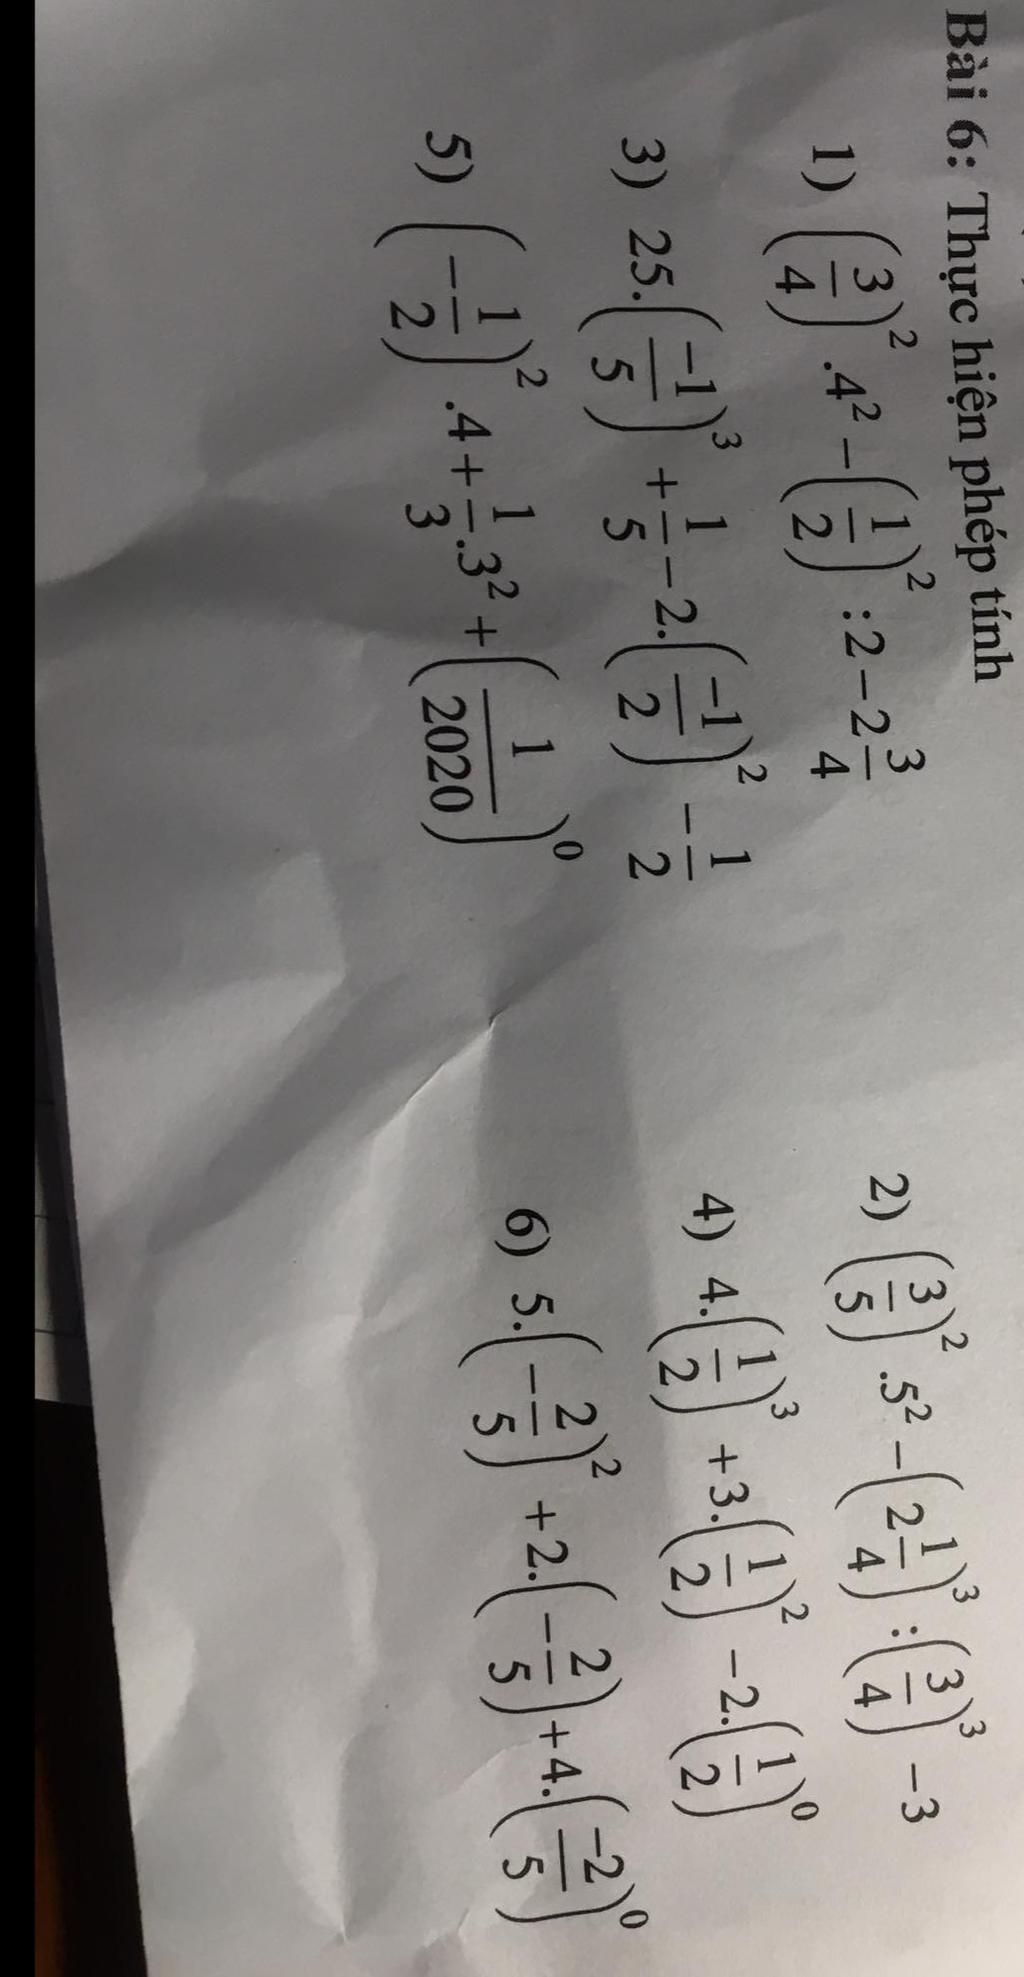 Bài 6: Thực hiện phép tính
1) (3/4)² .4² − (1/2)² : 2 − 2 3/4
2) (3/5)² .5² − (2 1/4)³ : (3/4)³ − 3
3) 25.(−1/5)³ + 1/5 − 2.(−1/2)² − 1/2
4) 4.(1/2)³ + 3.(1/2)² − 2.(1/2)⁰
5) (−1/2)² .4 + 1/3 .3² + (1/2020)⁰
6) 5.(−2/5)² + 2.(−2/5) + 4.(−2/5)⁰